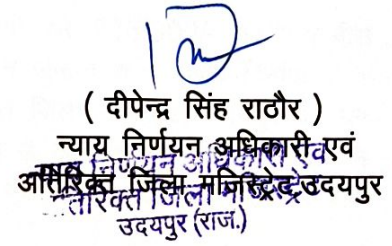 ( दीपेन्द्र सिंह राठौर )
न्याय निर्णयन अधिकारी एवं
अतिरिक्त जिला मजिस्ट्रेट,उदयपुर
न्याय निर्णयन अधिकारी एवं
अतिरिक्त जिला मजिस्ट्रेट
उदयपुर (राज.)